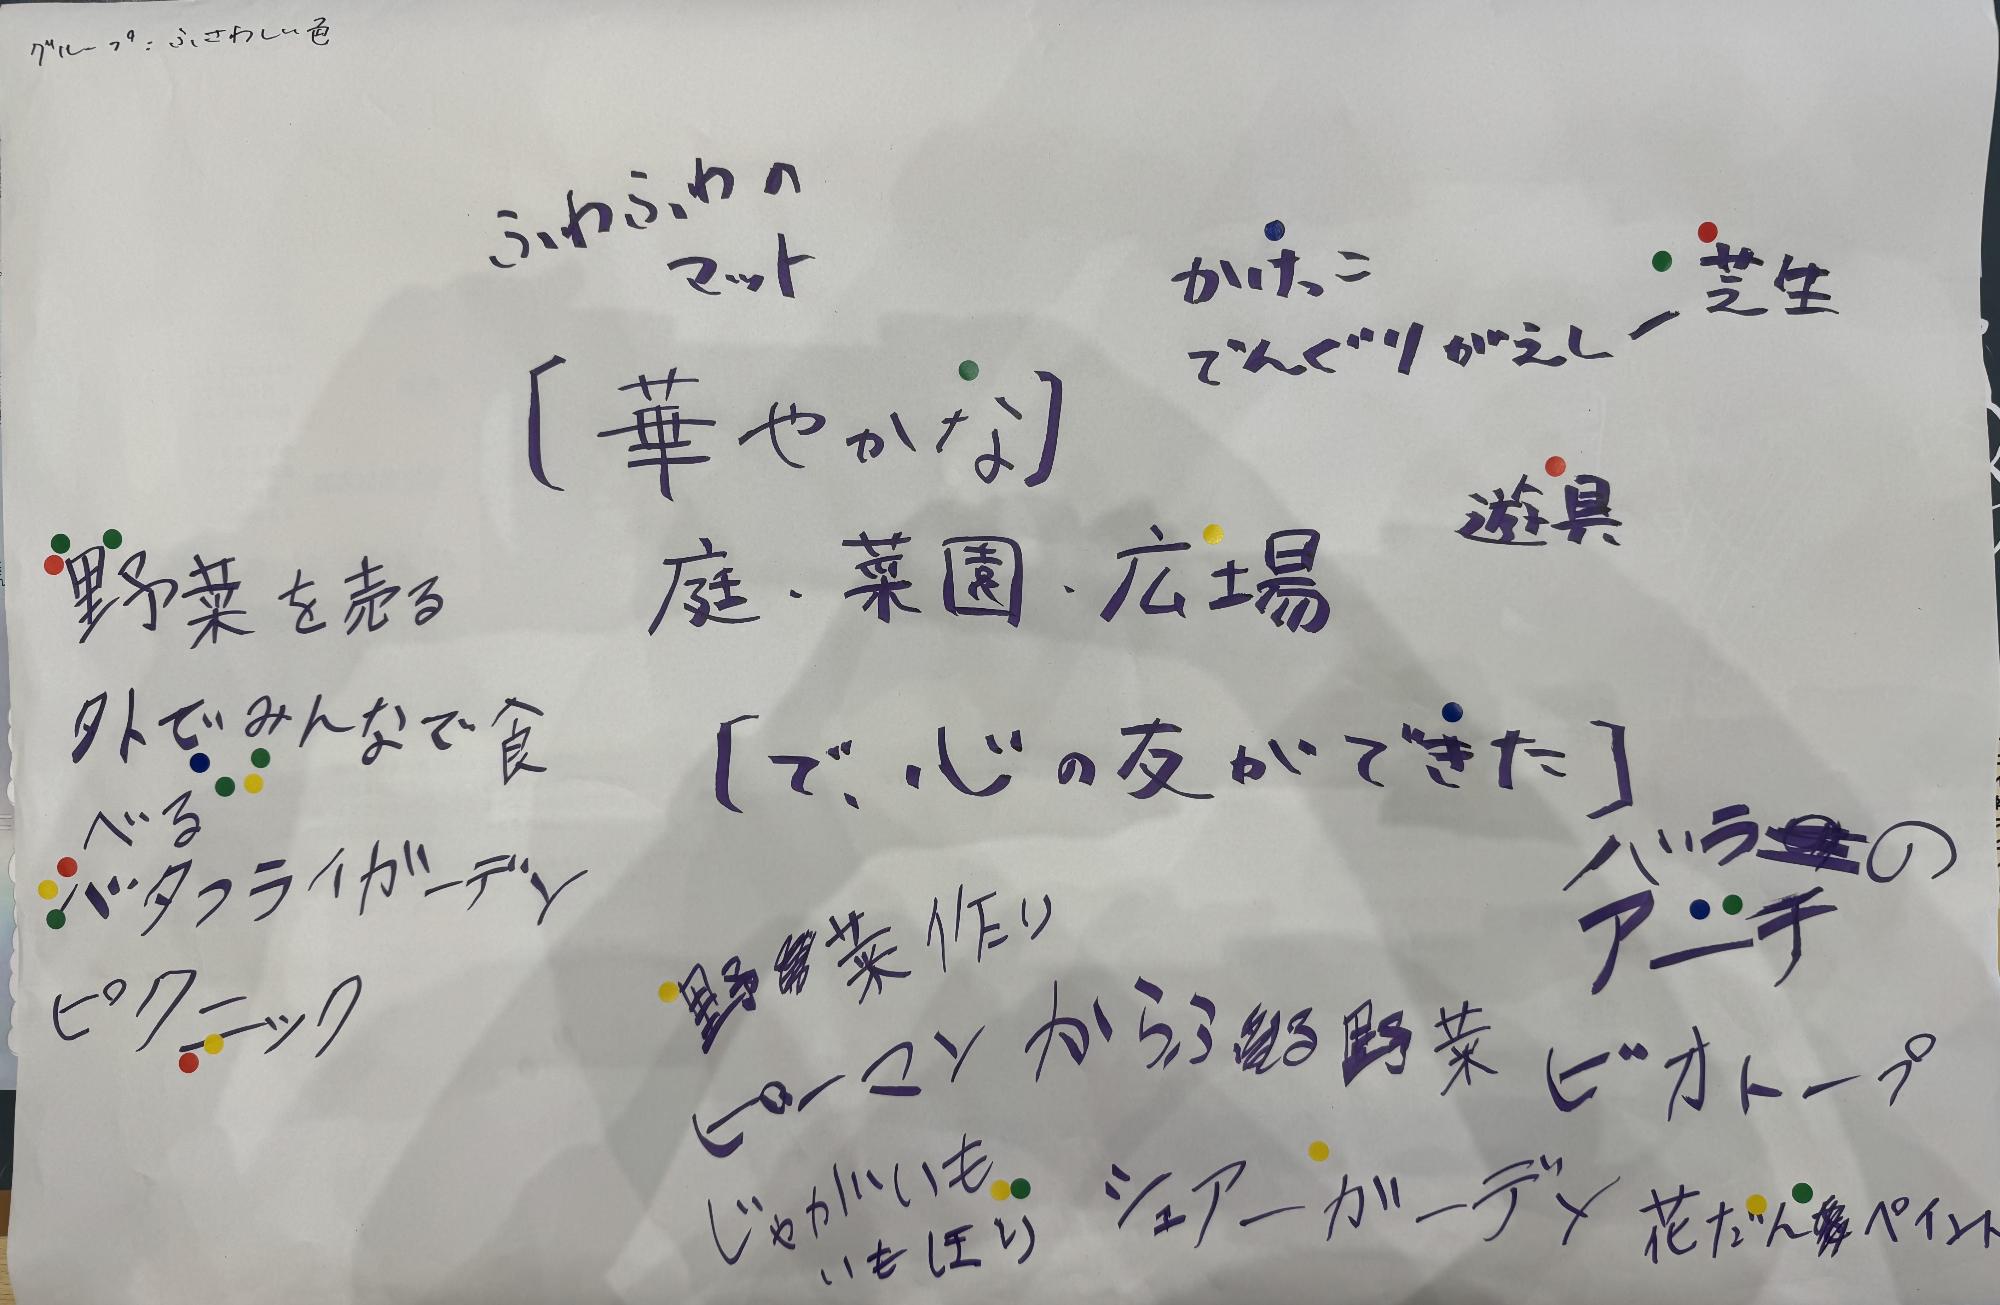 グループ：ふさわしい色
ふわふわの
マット
かけっこ
でんぐりがえし ー 芝生
[華やかな]
遊具
庭・菜園・広場
野菜を売る
外でみんなで食
べる
[で、心の友ができた]
バラの
アーチ
バタフライガーデン
ピクニック
野菜作り
ピーマンからふる野菜
ビオトープ
じゃがいも
いもほり
シェアーガーデン
花だんペイント